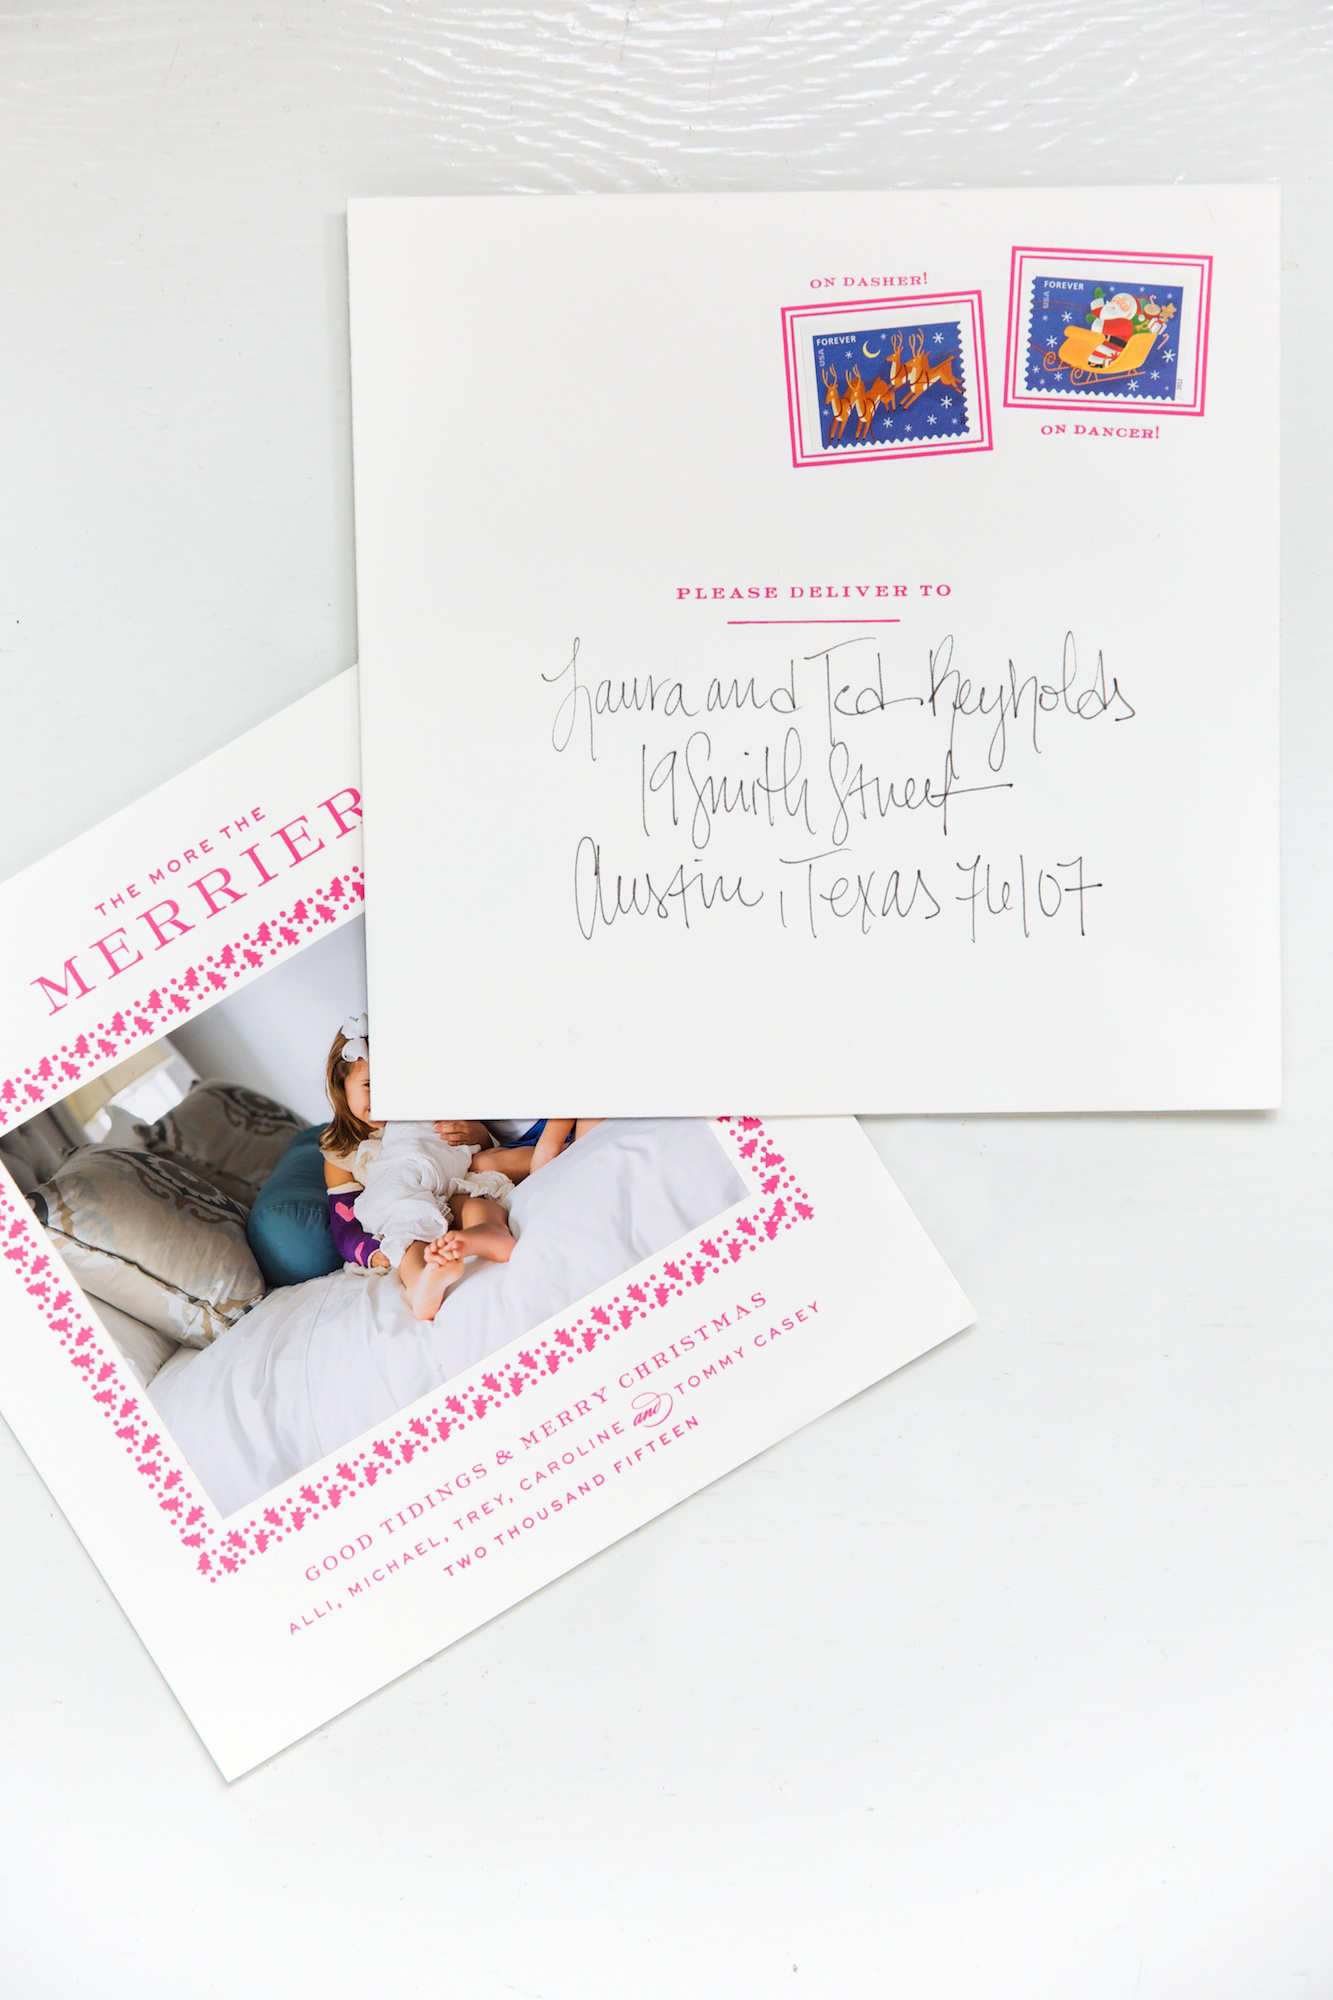 ON DASHER!
FOREVER
USA
FOREVER
USA
2012
ON DANCER!
PLEASE DELIVER TO
Laura and Ted Reynolds
19 Smith Street
Austin, Texas 76107
THE MORE THE
MERRIER
GOOD TIDINGS & MERRY CHRISTMAS
ALLI, MICHAEL, TREY, CAROLINE and TOMMY CASEY
TWO THOUSAND FIFTEEN